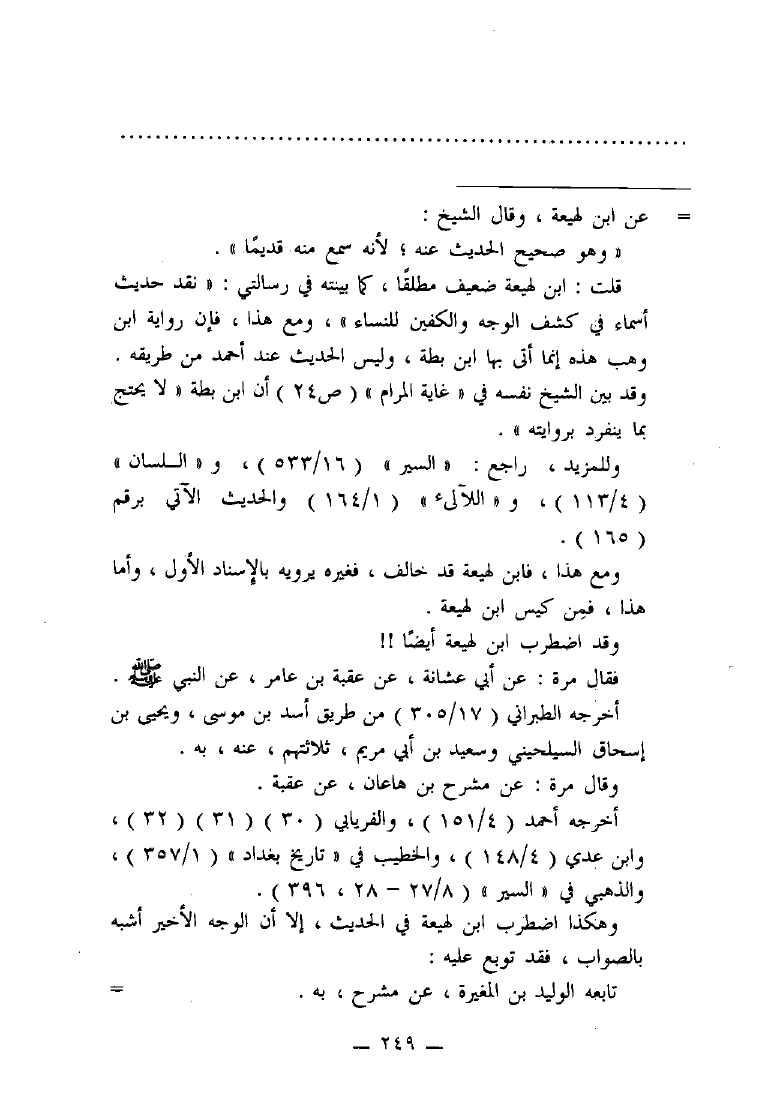 ................................................................
= عن ابن لهيعة ، وقال الشيخ :
« وهو صحيح الحديث عنه ؛ لأنه سمع منه قديمًا » .
قلت : ابن لهيعة ضعيف مطلقًا ، كما بينته في رسالتي : « نقد حديث
أسماء في كشف الوجه والكفين للنساء » ، ومع هذا ، فإن رواية ابن
وهب هذه إنما أتى بها ابن بطة ، وليس الحديث عند أحمد من طريقه .
وقد بين الشيخ نفسه في « غاية المرام » ( ص٢٤ ) أن ابن بطة « لا يحتج
بما ينفرد بروايته » .
وللمزيد ، راجع : « السير » ( ٥٣٣/١٦ ) ، و « اللسان »
( ١١٣/٤ ) ، و « اللآلىء » ( ١٦٤/١ ) والحديث الآتي برقم
( ١٦٥ ) .
ومع هذا ، فابن لهيعة قد خالف ، فغيره يرويه بالإسناد الأول ، وأما
هذا ، فمِن كيس ابن لهيعة .
وقد اضطرب ابن لهيعة أيضًا !!
فقال مرة : عن أبي عشانة ، عن عقبة بن عامر ، عن النبي ﷺ .
أخرجه الطبراني ( ٣٠٥/١٧ ) من طريق أسد بن موسى ، ويحيى بن
إسحاق السيلحيني وسعيد بن أبي مريم ، ثلاثتهم ، عنه ، به .
وقال مرة : عن مشرح بن هاعان ، عن عقبة .
أخرجه أحمد ( ١٥١/٤ ) ، والفريابي ( ٣٠ ) ( ٣١ ) ( ٣٢ ) ،
وابن عدي ( ١٤٨/٤ ) ، والخطيب في « تاريخ بغداد » ( ٣٥٧/١ ) ،
والذهبي في « السير » ( ٢٧/٨ – ٢٨ ، ٣٩٦ ) .
وهكذا اضطرب ابن لهيعة في الحديث ، إلا أن الوجه الأخير أشبه
بالصواب ، فقد توبع عليه :
تابعه الوليد بن المغيرة ، عن مشرح ، به . =
— ٢٤٩ —